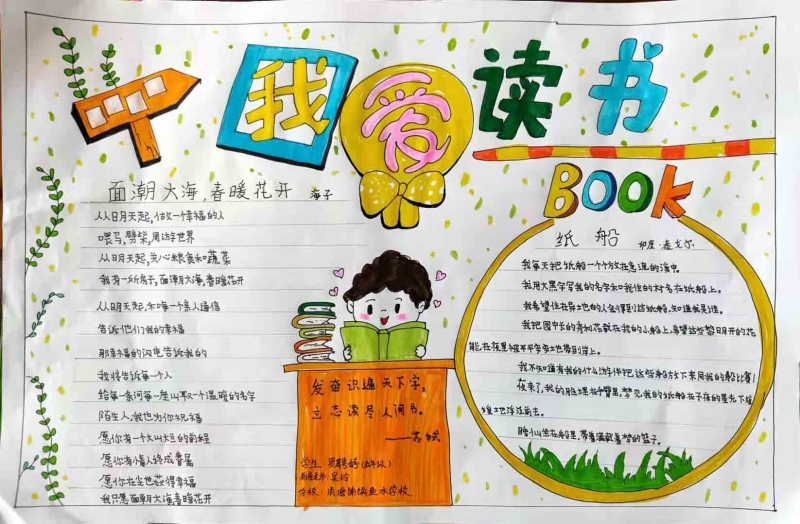 我爱读书
面潮大海,春暖花开 海子
从日月天起,做一个幸福的人
喂马,劈柴,周游世界
从日月天起,关心粮食和蔬菜
我有一所房子,面潮大海,春暖花开
从日月天起,和每一个亲人通信
告诉他们我的幸福
那幸福的闪电告诉我的
我将告诉每一个人
给每一条河每一座山取一个温暖的名字
陌生人,我也为你祝福
愿你有一个灿烂的前程
愿你有情人终成眷属
愿你在尘世获得幸福
我只愿面潮大海,春暖花开
发奋识遍天下字,
立志读尽人间书。
——苏轼
学生:
学校:
BOOK
纸船 印度·泰戈尔
我每天把纸船一个个放在急流的溪中。
我用大黑字写我的名字和我住的村名在纸船上。
我希望住在异地的人会得到这纸船,知道我是谁。
我把园中长的秀利花载在我的小船上,希望这些黎明开的花
能在夜里被平平安安地带到岸上。
我不知道有我的什么游伴把这些船放下来同我的船比赛!
夜来了,我的脸埋在手臂里,梦见我的纸船在子夜的星光下缓
缓地浮泛前去。
睡仙坐在船里,带着满载着梦的篮子。